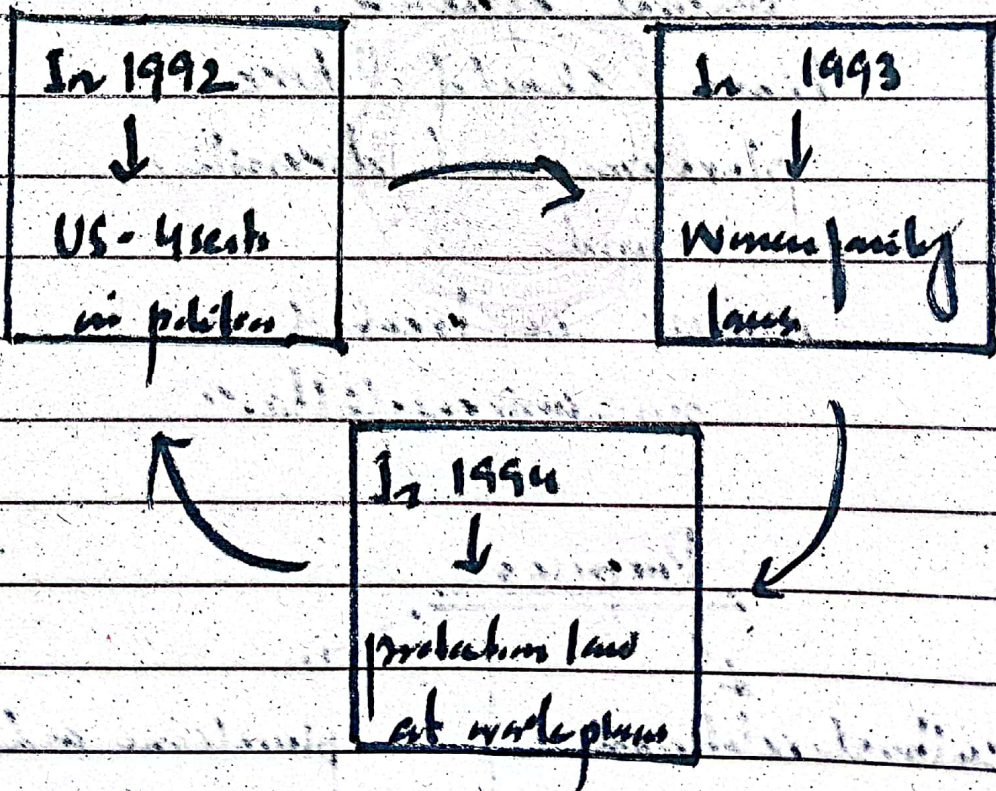 In 1992
↓
US - 4 seats
in politics
In 1993
↓
Women family
laws
In 1994
↓
protection law
at work place